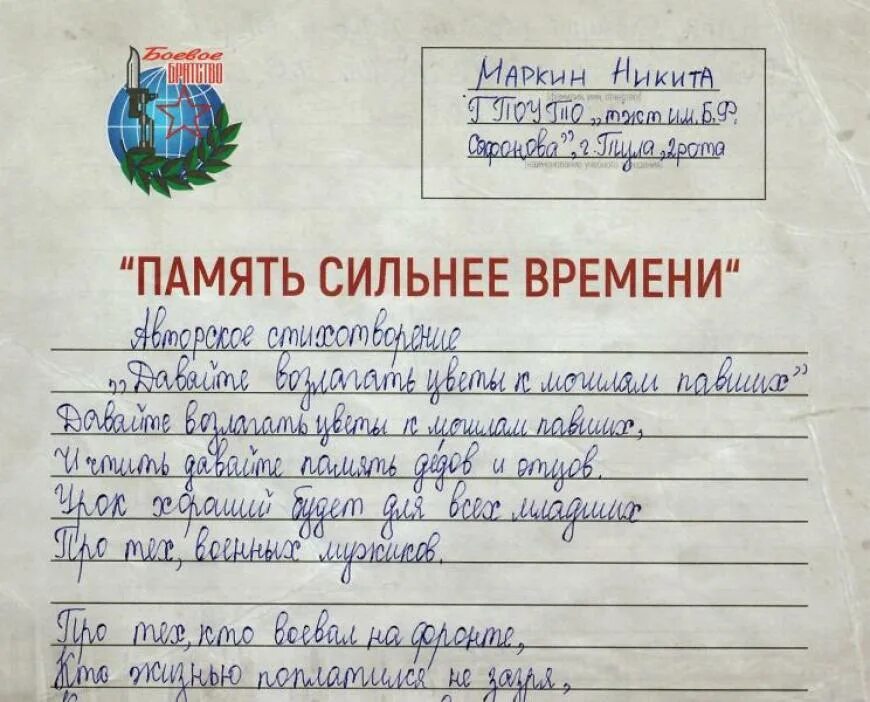 Боевое
БРАТСТВО
Маркин Никита
ГПОУ ТО „тжт им. Б.Ф.
Сафонова”, г. Тула, 2 рота
(наименование учебного заведения)
“ПАМЯТЬ СИЛЬНЕЕ ВРЕМЕНИ“
Авторское стихотворение
„Давайте возлагать цветы к могилам павших”
Давайте возлагать цветы к могилам павших,
И чтить давайте память дедов и отцов.
Урок хороший будет для всех младших
Про тех, военных мужиков.
Про тех, кто воевал на фронте,
Кто жизнью поплатился не зазря,